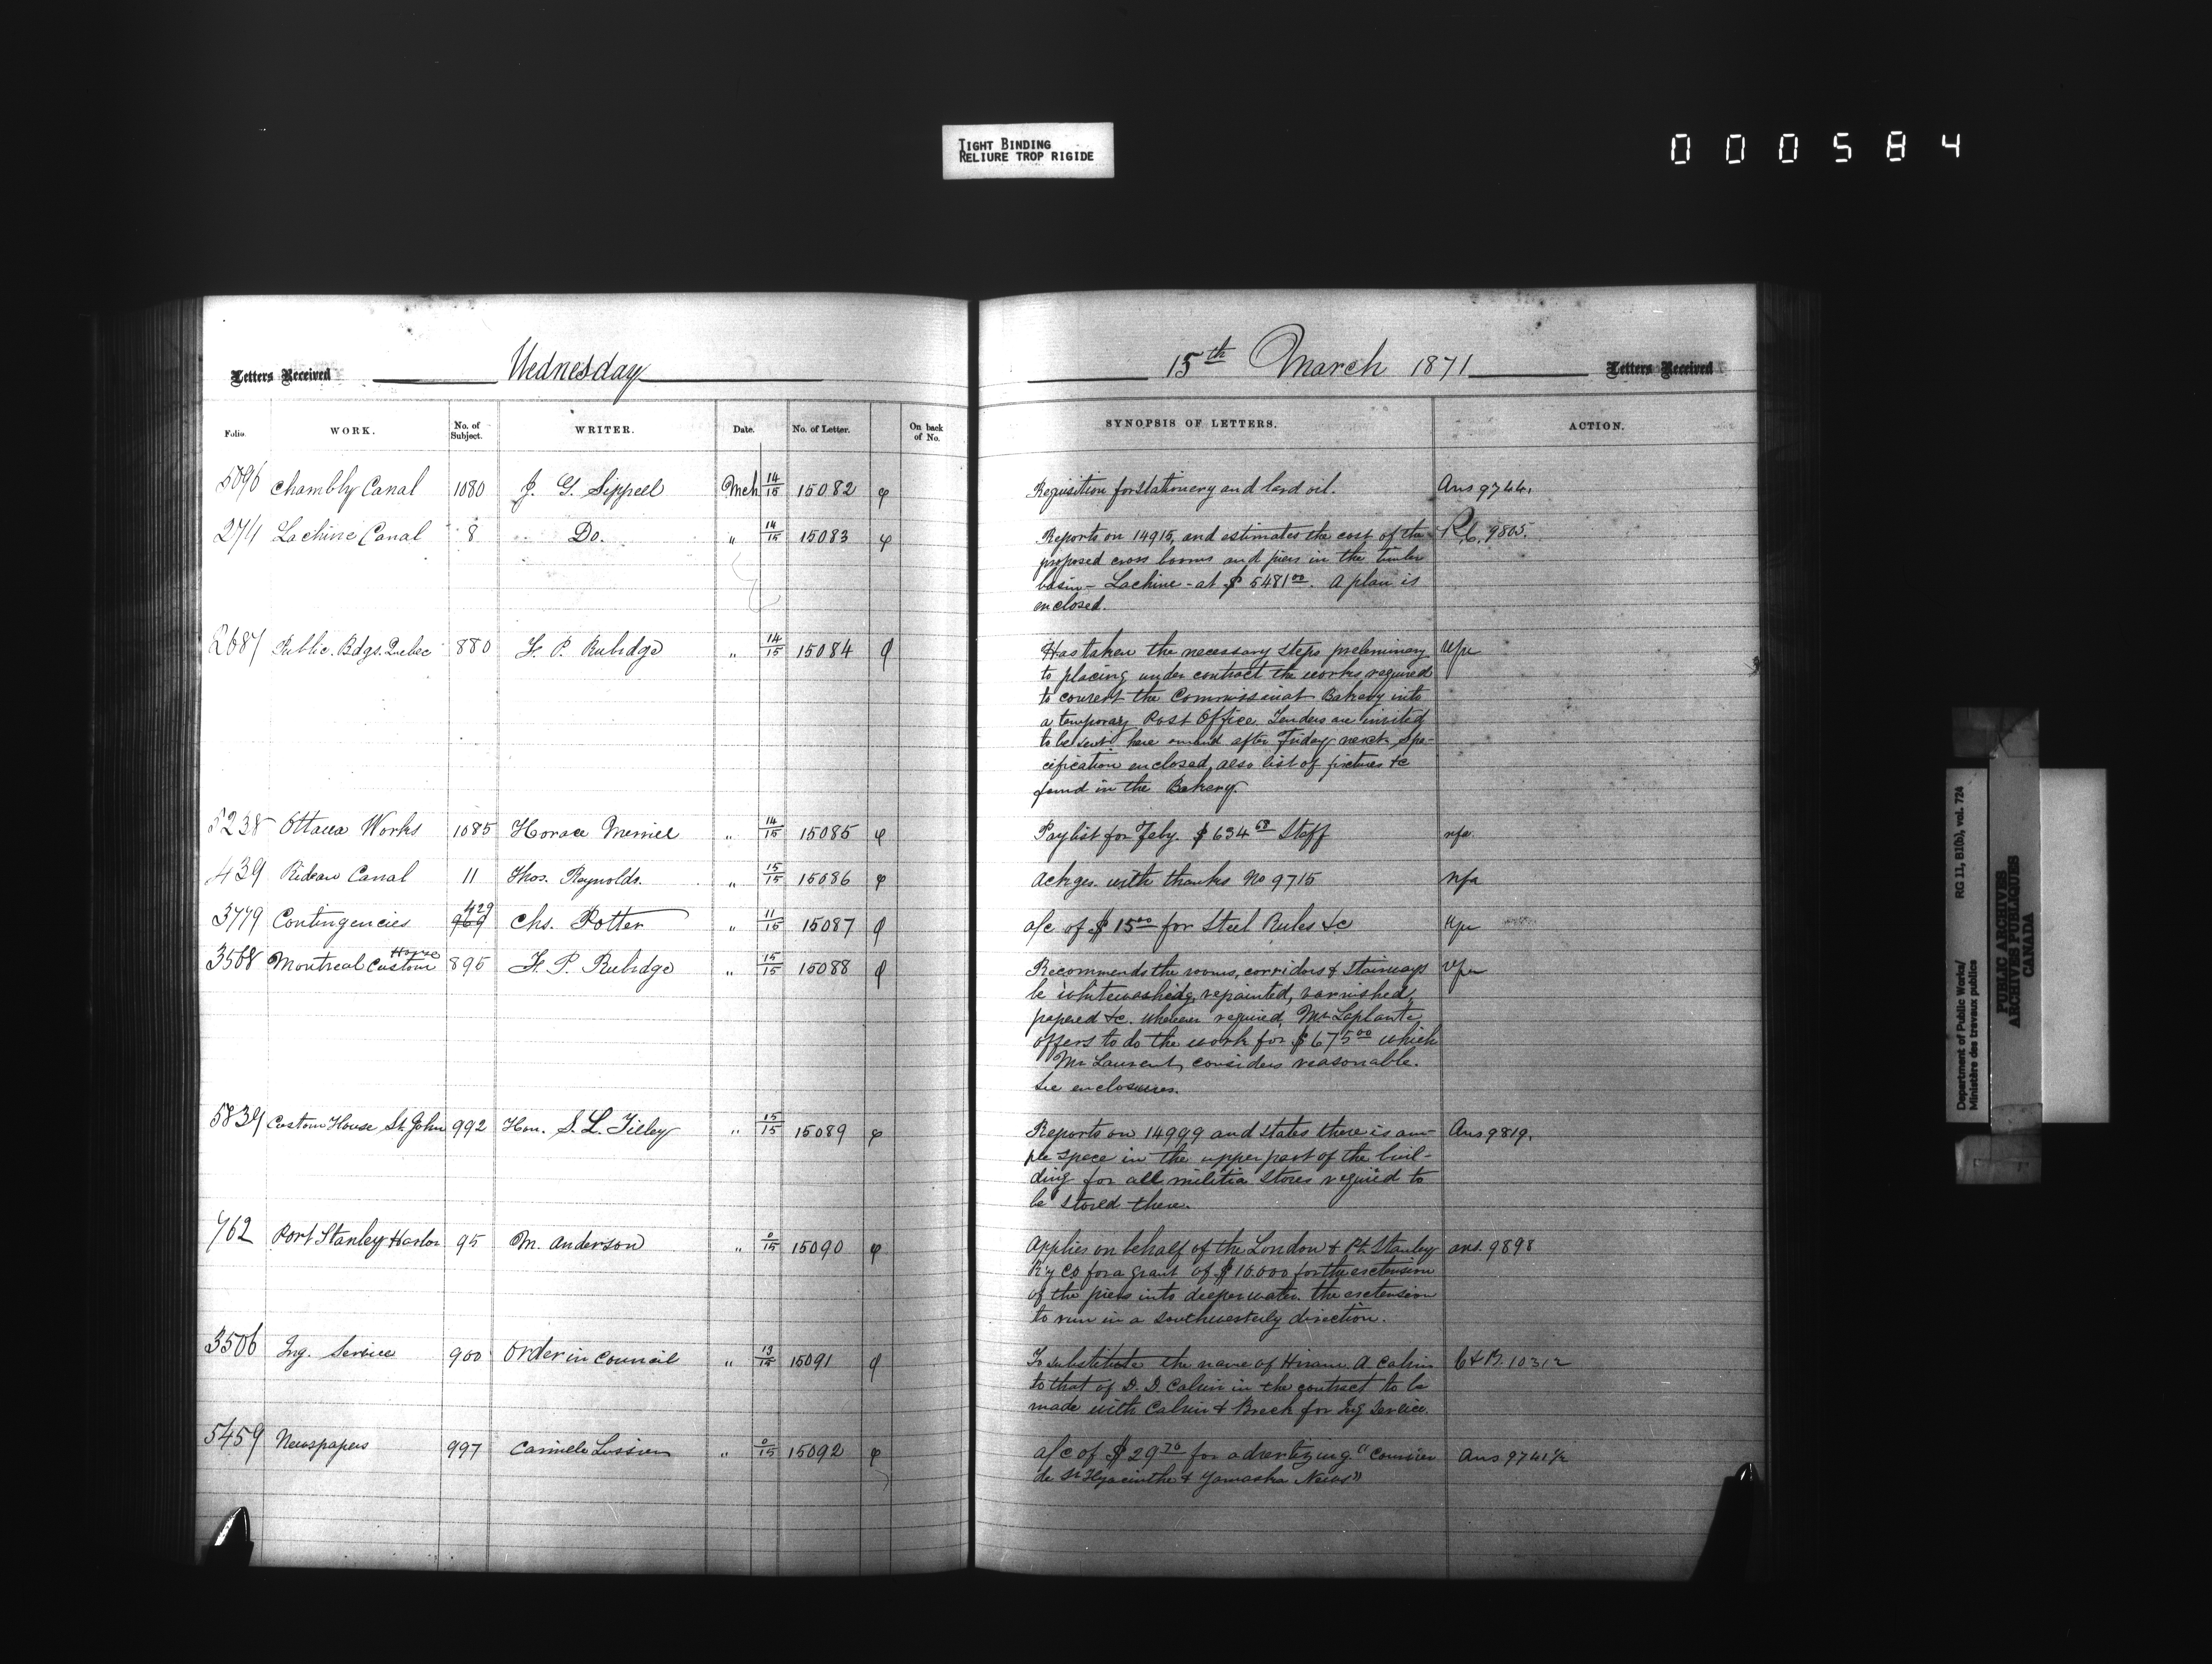 TIGHT BINDING
RELIURE TROP RIGIDE
000584
Letters Received Wednesday
Folio. WORK. No. of Subject. WRITER. Date. No. of Letter. On back of No.
5096 Chambly Canal 1080 J. G. Sippell Mch 14/15 15082
Lachine Canal 8 Do. " 14/15 15083
2687 Public Bdgs. Quebec 880 F. P. Rubidge " 14/15 15084
5238 Ottawa Works 1085 Horace Merrill " 14/15 15085
439 Rideau Canal 11 Thos. Reynolds. " 15/15 15086
3779 Contingencies 969 429 Chs. Potter " 11/15 15087
3568 Montreal Custom House 895 F. P. Rubidge " 15/15 15088
5839 Custom House St. John 992 Hon. S. L. Tilley " 15/15 15089
762 Port Stanley Harbor 95 M. Anderson " 0/15 15090
3506 Tug. Service 900 Order in Council " 13/15 15091
5459 Newspapers 997 Camille Lussier " 0/15 15092
15th March 1871 Letters Received
SYNOPSIS OF LETTERS. ACTION.
Requisition for stationery and lard oil. Ans 9744.
Reports on 14915, and estimates the cost of the 9805.
proposed cross booms and piers in the timber
basin - Lachine - at $5481 00. A plan is
enclosed.
Has taken the necessary steps preliminary
to placing under contract the works required
to convert the Commissariat Bakery into
a temporary Post Office. Tenders are invited
to be sent here on and after Friday next. Spe-
cification enclosed, also list of fixtures &c
found in the Bakery.
Paylist for Feby. $634 68 Staff nfa
Ackges. with thanks No 9715 nfa
a/c of $15 00 for Steel Rules &c
Recommends the rooms, corridors & stairways
be whitewashed, repainted, varnished,
papered &c. wherever required, Mr Laplante
offers to do the work for $675 00 which
Mr Laurent, considers reasonable.
See enclosures.
Reports on 14999 and states there is am- Ans 9819.
ple space in the upper part of the buil-
ding for all militia Stores required to
be stored there.
Applies on behalf of the London & Pt. Stanley ans. 9898
R'y Co for a grant of $10.000 for the extension
of the piers into deeper water. the extension
to run in a southwesterly direction.
To substitute the name of Hiram. A. Calvin 10312
to that of D. D. Calvin in the contract to be
made with Calvin & Breck for Tug Service.
a/c of $29 70 for advertizing "Courrier Ans 9741 1/2
de St Hyacinthe & Yamaska News"
Department of Public Works/ RG 11, B1(b), vol. 724
Ministère des travaux publics
PUBLIC ARCHIVES
ARCHIVES PUBLIQUES
CANADA